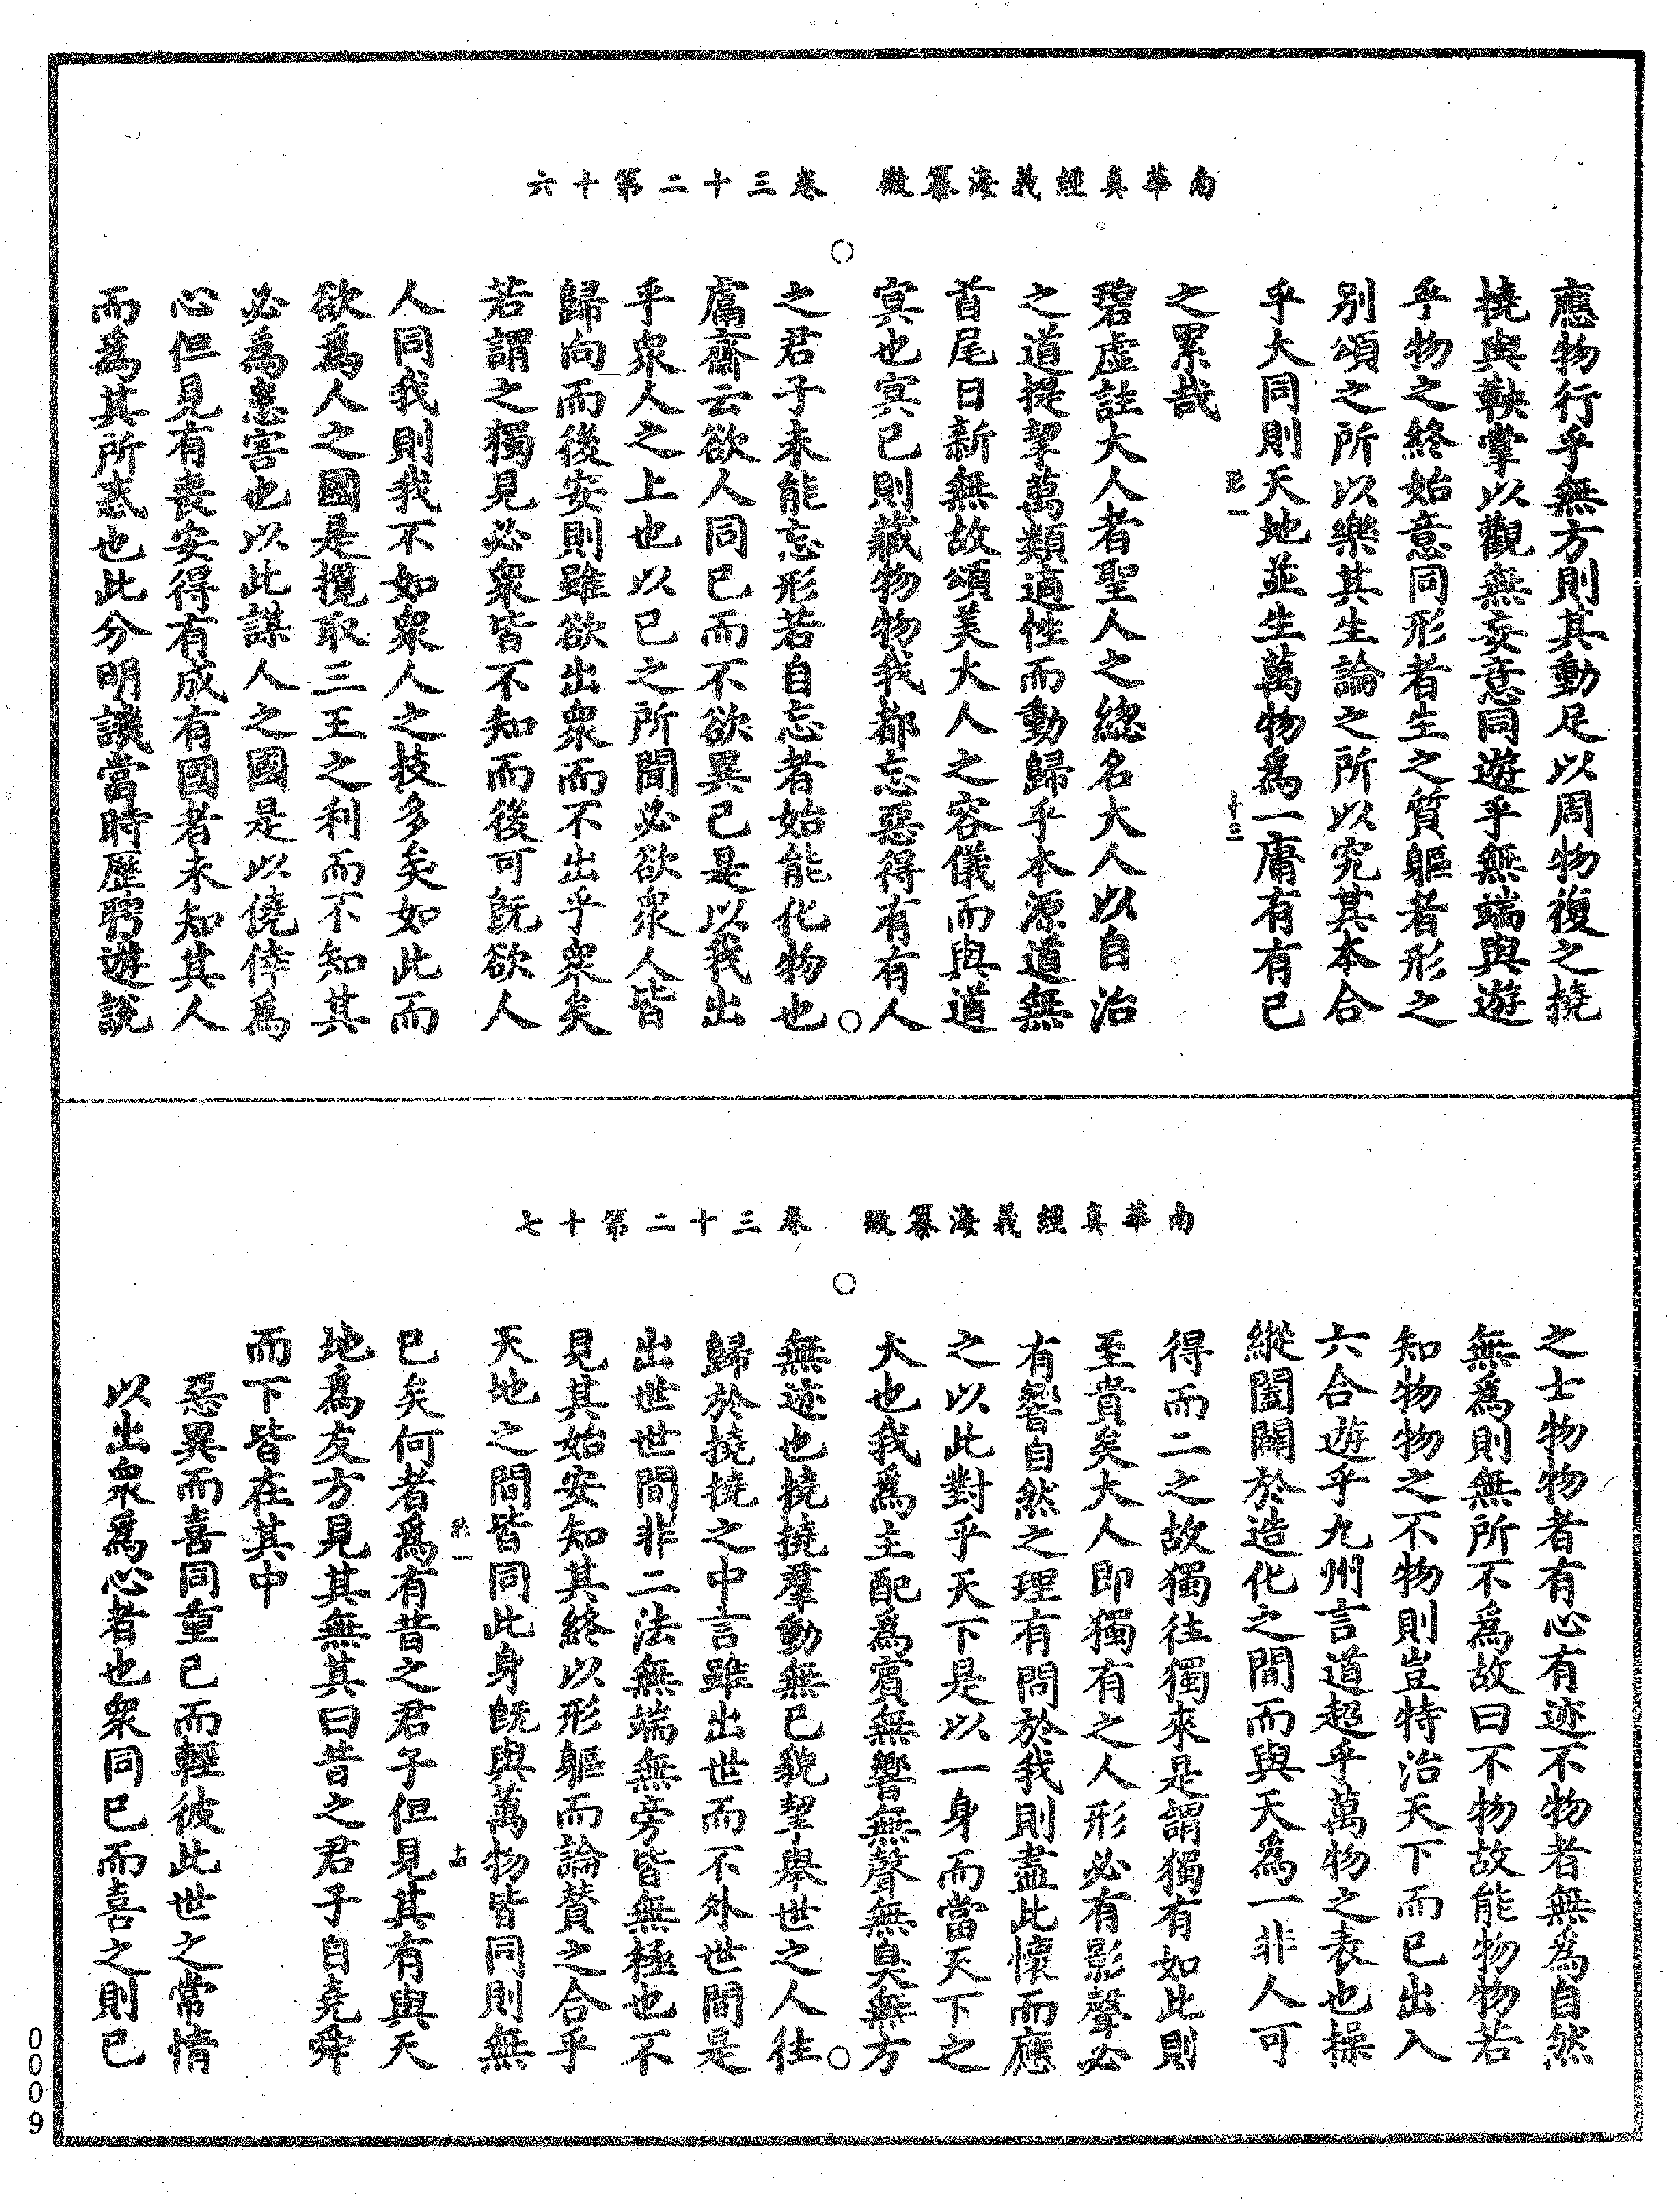 南華真經義海纂微　卷三十二第十六
應物行乎無方則其動足以周物復之撓
撓與鞅掌以觀無妄意同遊乎無端與遊
乎物之終始意同形者生之質軀者形之
別頌之所以樂其生論之所以究其本合
乎大同則天地並生萬物為一庸有有己
之累哉
碧虛註大人者聖人之總名大人以自治
之道提挈萬類適性而動歸乎本源道無
首尾日新無故頌美大人之容儀而與道
冥也冥已則藏物物我都忘惡得有有人
之君子未能忘形若自忘者始能化物也
鬳齋云欲人同己而不欲異己是以我出
乎衆人之上也以己之所聞必欲衆人皆
歸向而後安則雖欲出衆而不出乎衆矣
若謂之獨見必衆皆不知而後可既欲人
人同我則我不如衆人之技多矣如此而
欲為人之國是攬取三王之利而不知其
必為患害也以此謀人之國是以僥倖為
心但見有喪安得有成有國者未知其人
而為其所惑也此分明譏當時歷聘遊說
南華真經義海纂微　卷三十二第十七
之士物物者有心有迹不物者無為自然
無為則無所不為故曰不物故能物物若
知物物之不物則豈特治天下而已出入
六合遊乎九州言道超乎萬物之表也操
縱闔闢於造化之間而與天為一非人可
得而二之故獨往獨來是謂獨有如此則
至貴矣大人即獨有之人形必有影聲必
有響自然之理有問於我則盡此懷而應
之以此對乎天下是以一身而當天下之
大也我為主配為賓無響無聲無臭無方
無迹也撓撓羣動無已貌挈舉世之人往
歸於撓撓之中言雖出世而不外世間是
出世世間非二法無端無旁皆無極也不
見其始安知其終以形軀而論贊之合乎
天地之間皆同此身既與萬物皆同則無
己矣何者為有昔之君子但見其有與天
地為友方見其無其曰昔之君子自堯舜
而下皆在其中
惡異而喜同重己而輕彼此世之常情
以出衆為心者也衆同己而喜之則己
0009